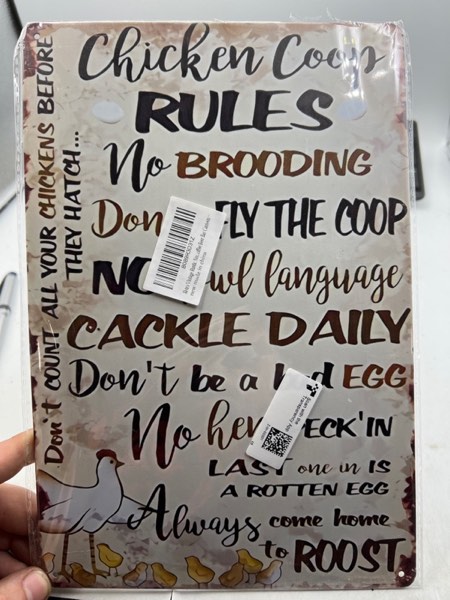 Chicken Coop
RULES
No BROODING
Don FLY THE COOP
NO wl language
CACKLE DAILY
Don't be a b d EGG
No hen ECK'IN
LAST one in IS
A ROTTEN EGG
Always come home
to ROOST
Don't COUNT ALL YOUR CHICKENS BEFORE
THEY HATCH...